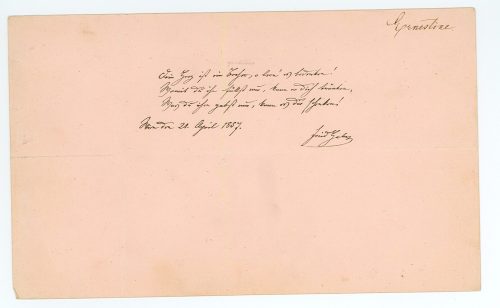 Ernestine
Dein Herz ist ein Becher, o lern' es bedenken!
Womit du ihn füllst nur, kann er dich tränken,
Was du ihm gabst nur, kann es dir schenken!
Wien den 20. April 1857.